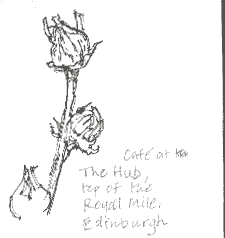 Café at the
The Hub,
top of the
Royal Mile.
Edinburgh